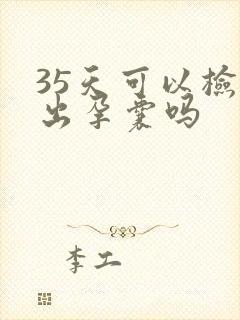 35天可以檢
出孕囊吗
李工